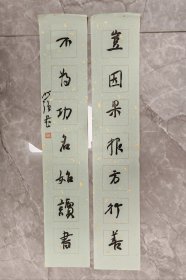 豈因果报方行善
不为功名始讀書